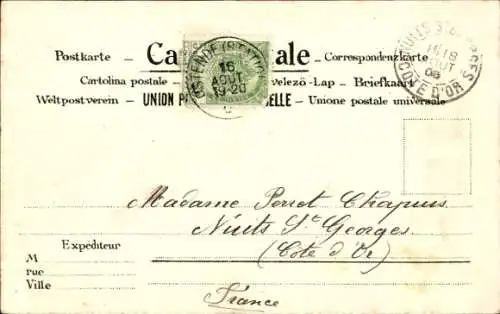 Postkarte – Ca ale – Correspondenzkarte
Cartolina postale – velezö-Lap – Briefkaart
Weltpostverein – UNION P ELLE – Unione postale universale
OSTENDE
16
AOUT
19-20
NUITS ST GEORGES
18
AOUT
COTE D'OR
Madame Perret Chapuis
Nuits St Georges
(Côte d'Or)
France
Expéditeur
M
rue
Ville